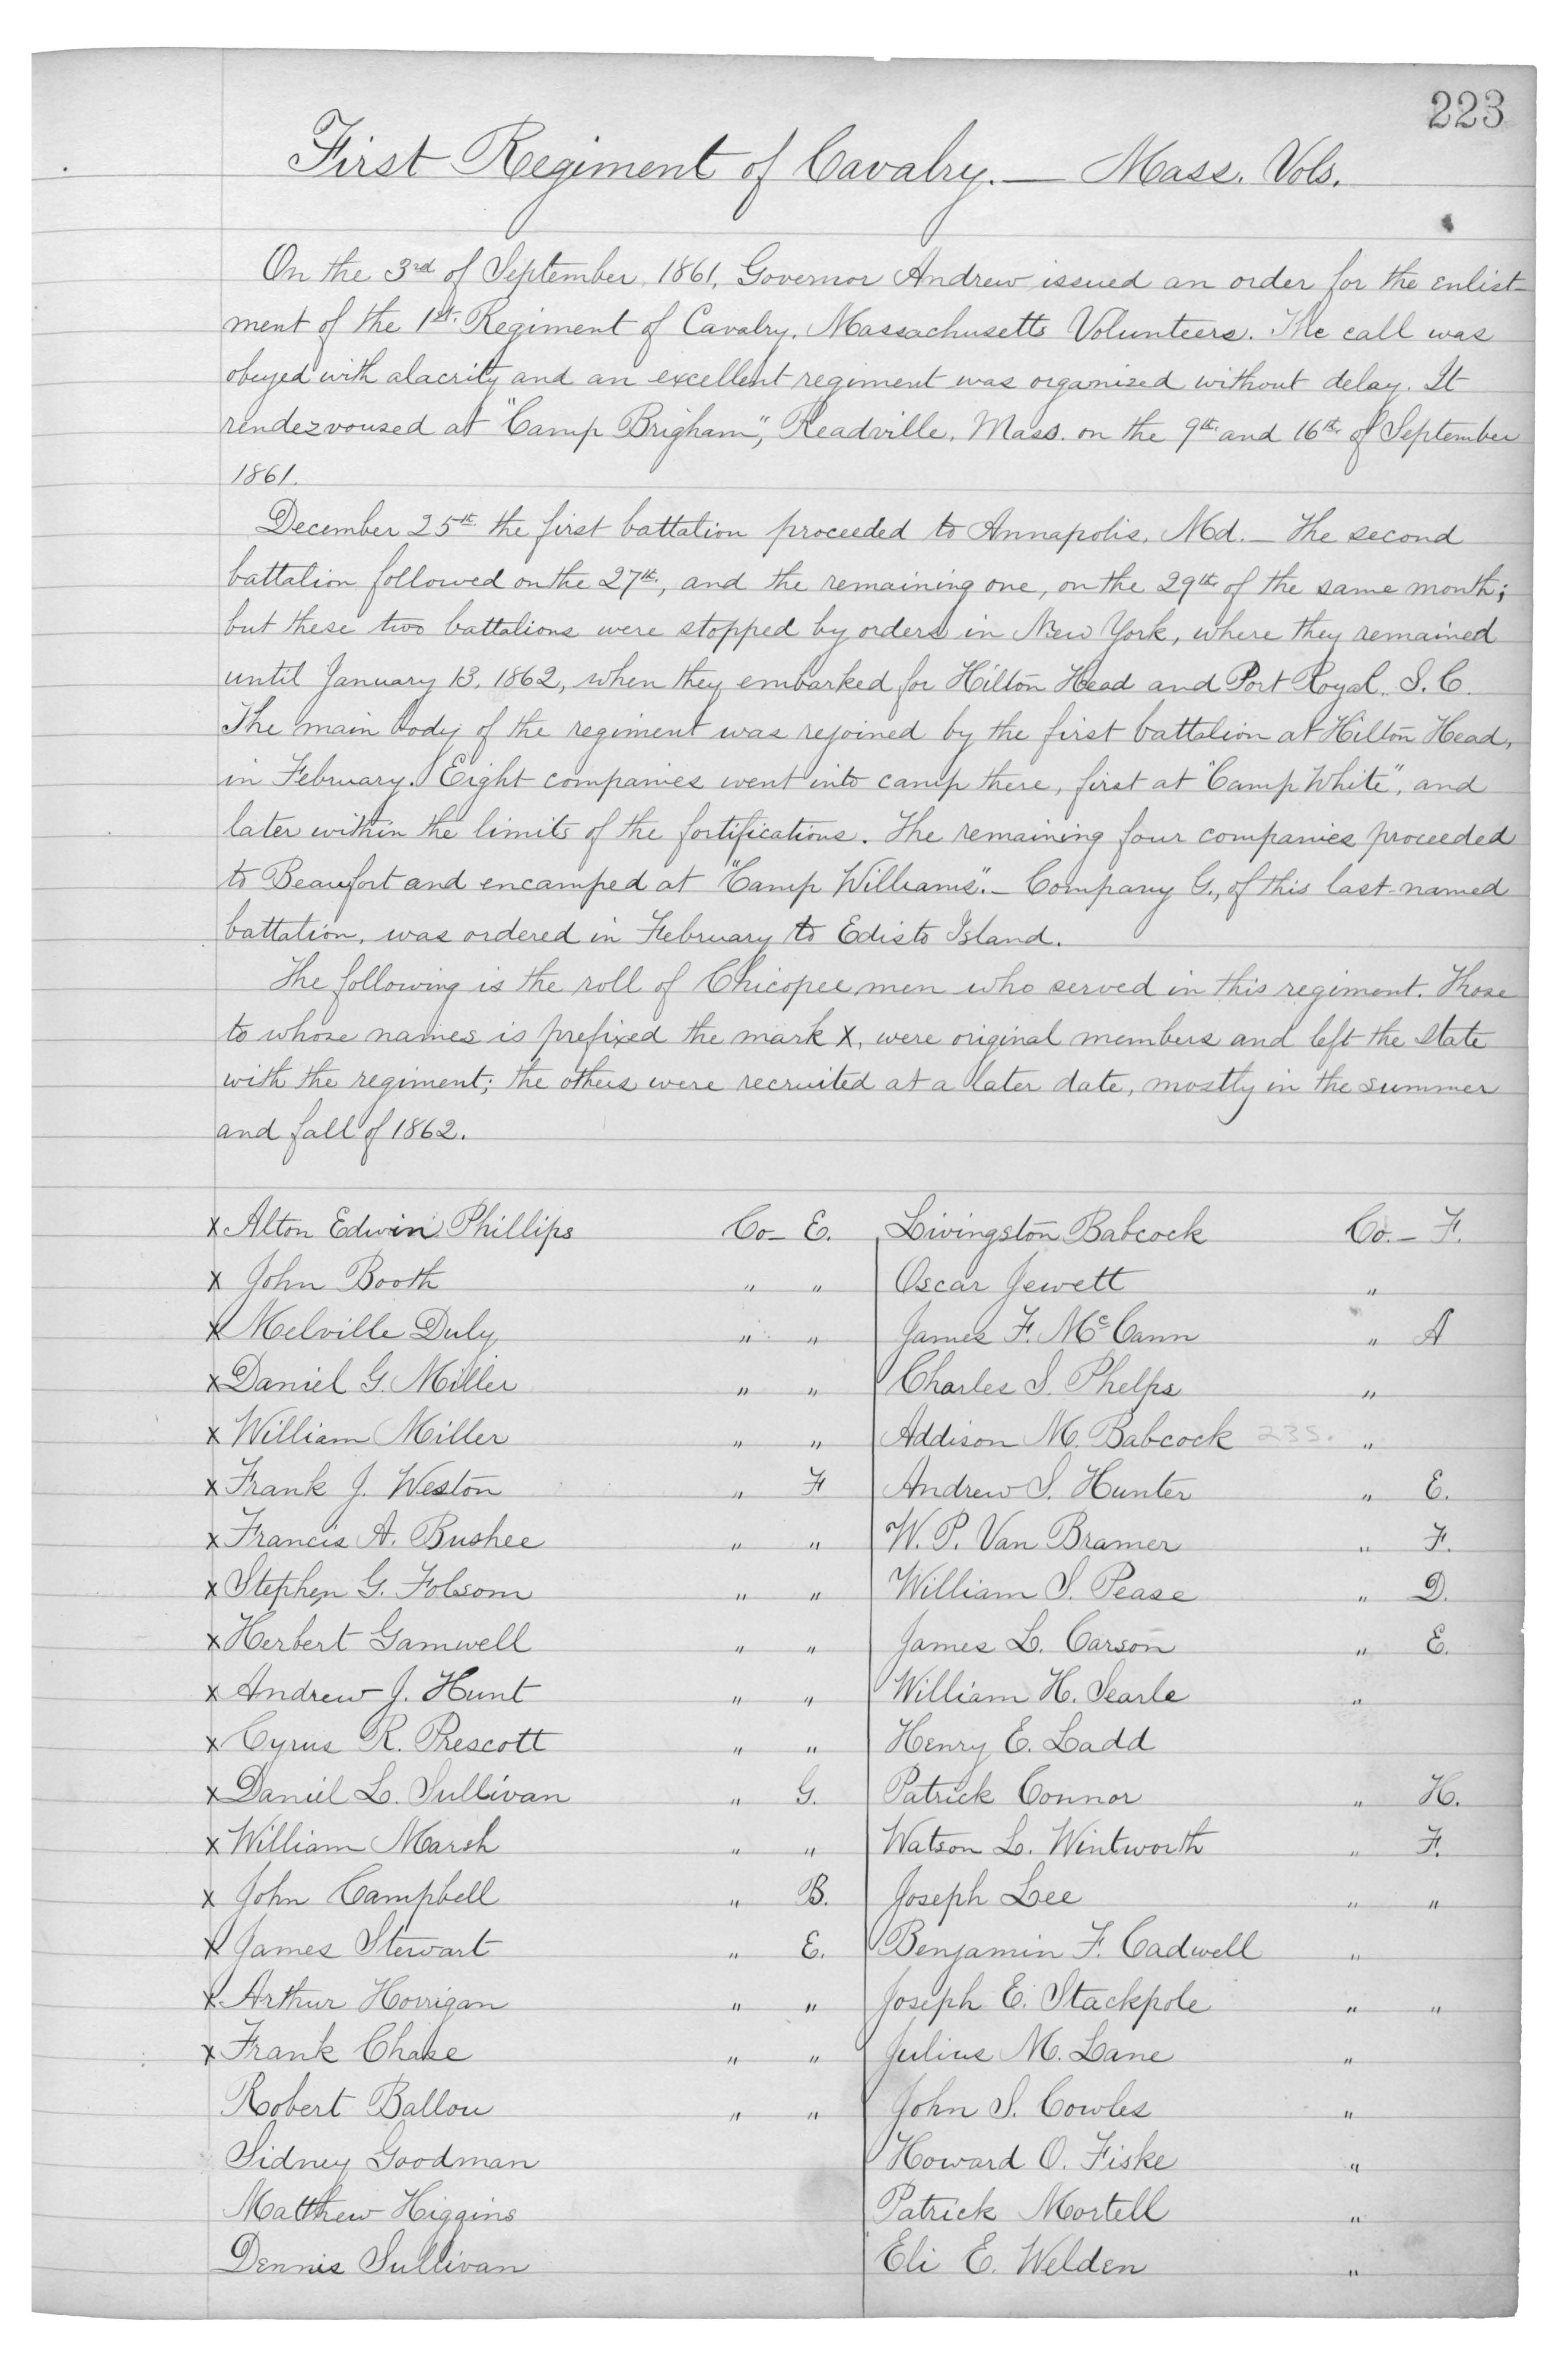 223
First Regiment of Cavalry. — Mass. Vols.
On the 3rd of September, 1861, Governor Andrew issued an order for the enlist-
ment of the 1st. Regiment of Cavalry, Massachusetts Volunteers. The call was
obeyed with alacrity and an excellent regiment was organized without delay. It
rendezvoused at "Camp Brigham", Readville, Mass. on the 9th and 16th of September
1861.
December 25th the first battalion proceeded to Annapolis, Md. — The second
battalion followed on the 27th, and the remaining one, on the 29th of the same month;
but these two battalions were stopped by orders in New York, where they remained
until January 13, 1862, when they embarked for Hilton Head and Port Royal, S. C.
The main body of the regiment was rejoined by the first battalion at Hilton Head,
in February. Eight companies went into camp there, first at "Camp White", and
later within the limits of the fortifications. The remaining four companies proceeded
to Beaufort and encamped at "Camp Williams". — Company G., of this last-named
battalion, was ordered in February to Edisto Island.
The following is the roll of Chicopee men who served in this regiment. Those
to whose names is prefixed the mark X, were original members and left the state
with the regiment; the others were recruited at a later date, mostly in the summer
and fall of 1862.
x Alton Edwin Phillips Co— E. Livingston Babcock Co.— F.
x John Booth " " Oscar Jewett "
x Melville Duly " " James F. McCann " A
x Daniel G. Miller " " Charles S. Phelps "
x William Miller " " Addison M. Babcock 235. "
x Frank J. Weston " F Andrew S. Hunter " E.
x Francis A. Bushee " " W. P. Van Bramer " F.
x Stephen G. Folsom " " William S. Pease " D.
x Herbert Gamwell " " James L. Carson " E.
x Andrew J. Hunt " " William H. Searle "
x Cyrus R. Prescott " " Henry E. Ladd
x Daniel L. Sullivan " G. Patrick Connor " H.
x William Marsh " " Watson L. Wintworth " F.
x John Campbell " B. Joseph Lee " "
x James Stewart " E. Benjamin F. Cadwell "
x Arthur Horrigan " " Joseph E. Stackpole " "
x Frank Chase " " Julius M. Lane "
Robert Ballou " " John S. Cowles "
Sidney Goodman Howard O. Fiske "
Matthew Higgins Patrick Mortell "
Dennis Sullivan Eli E. Welden "